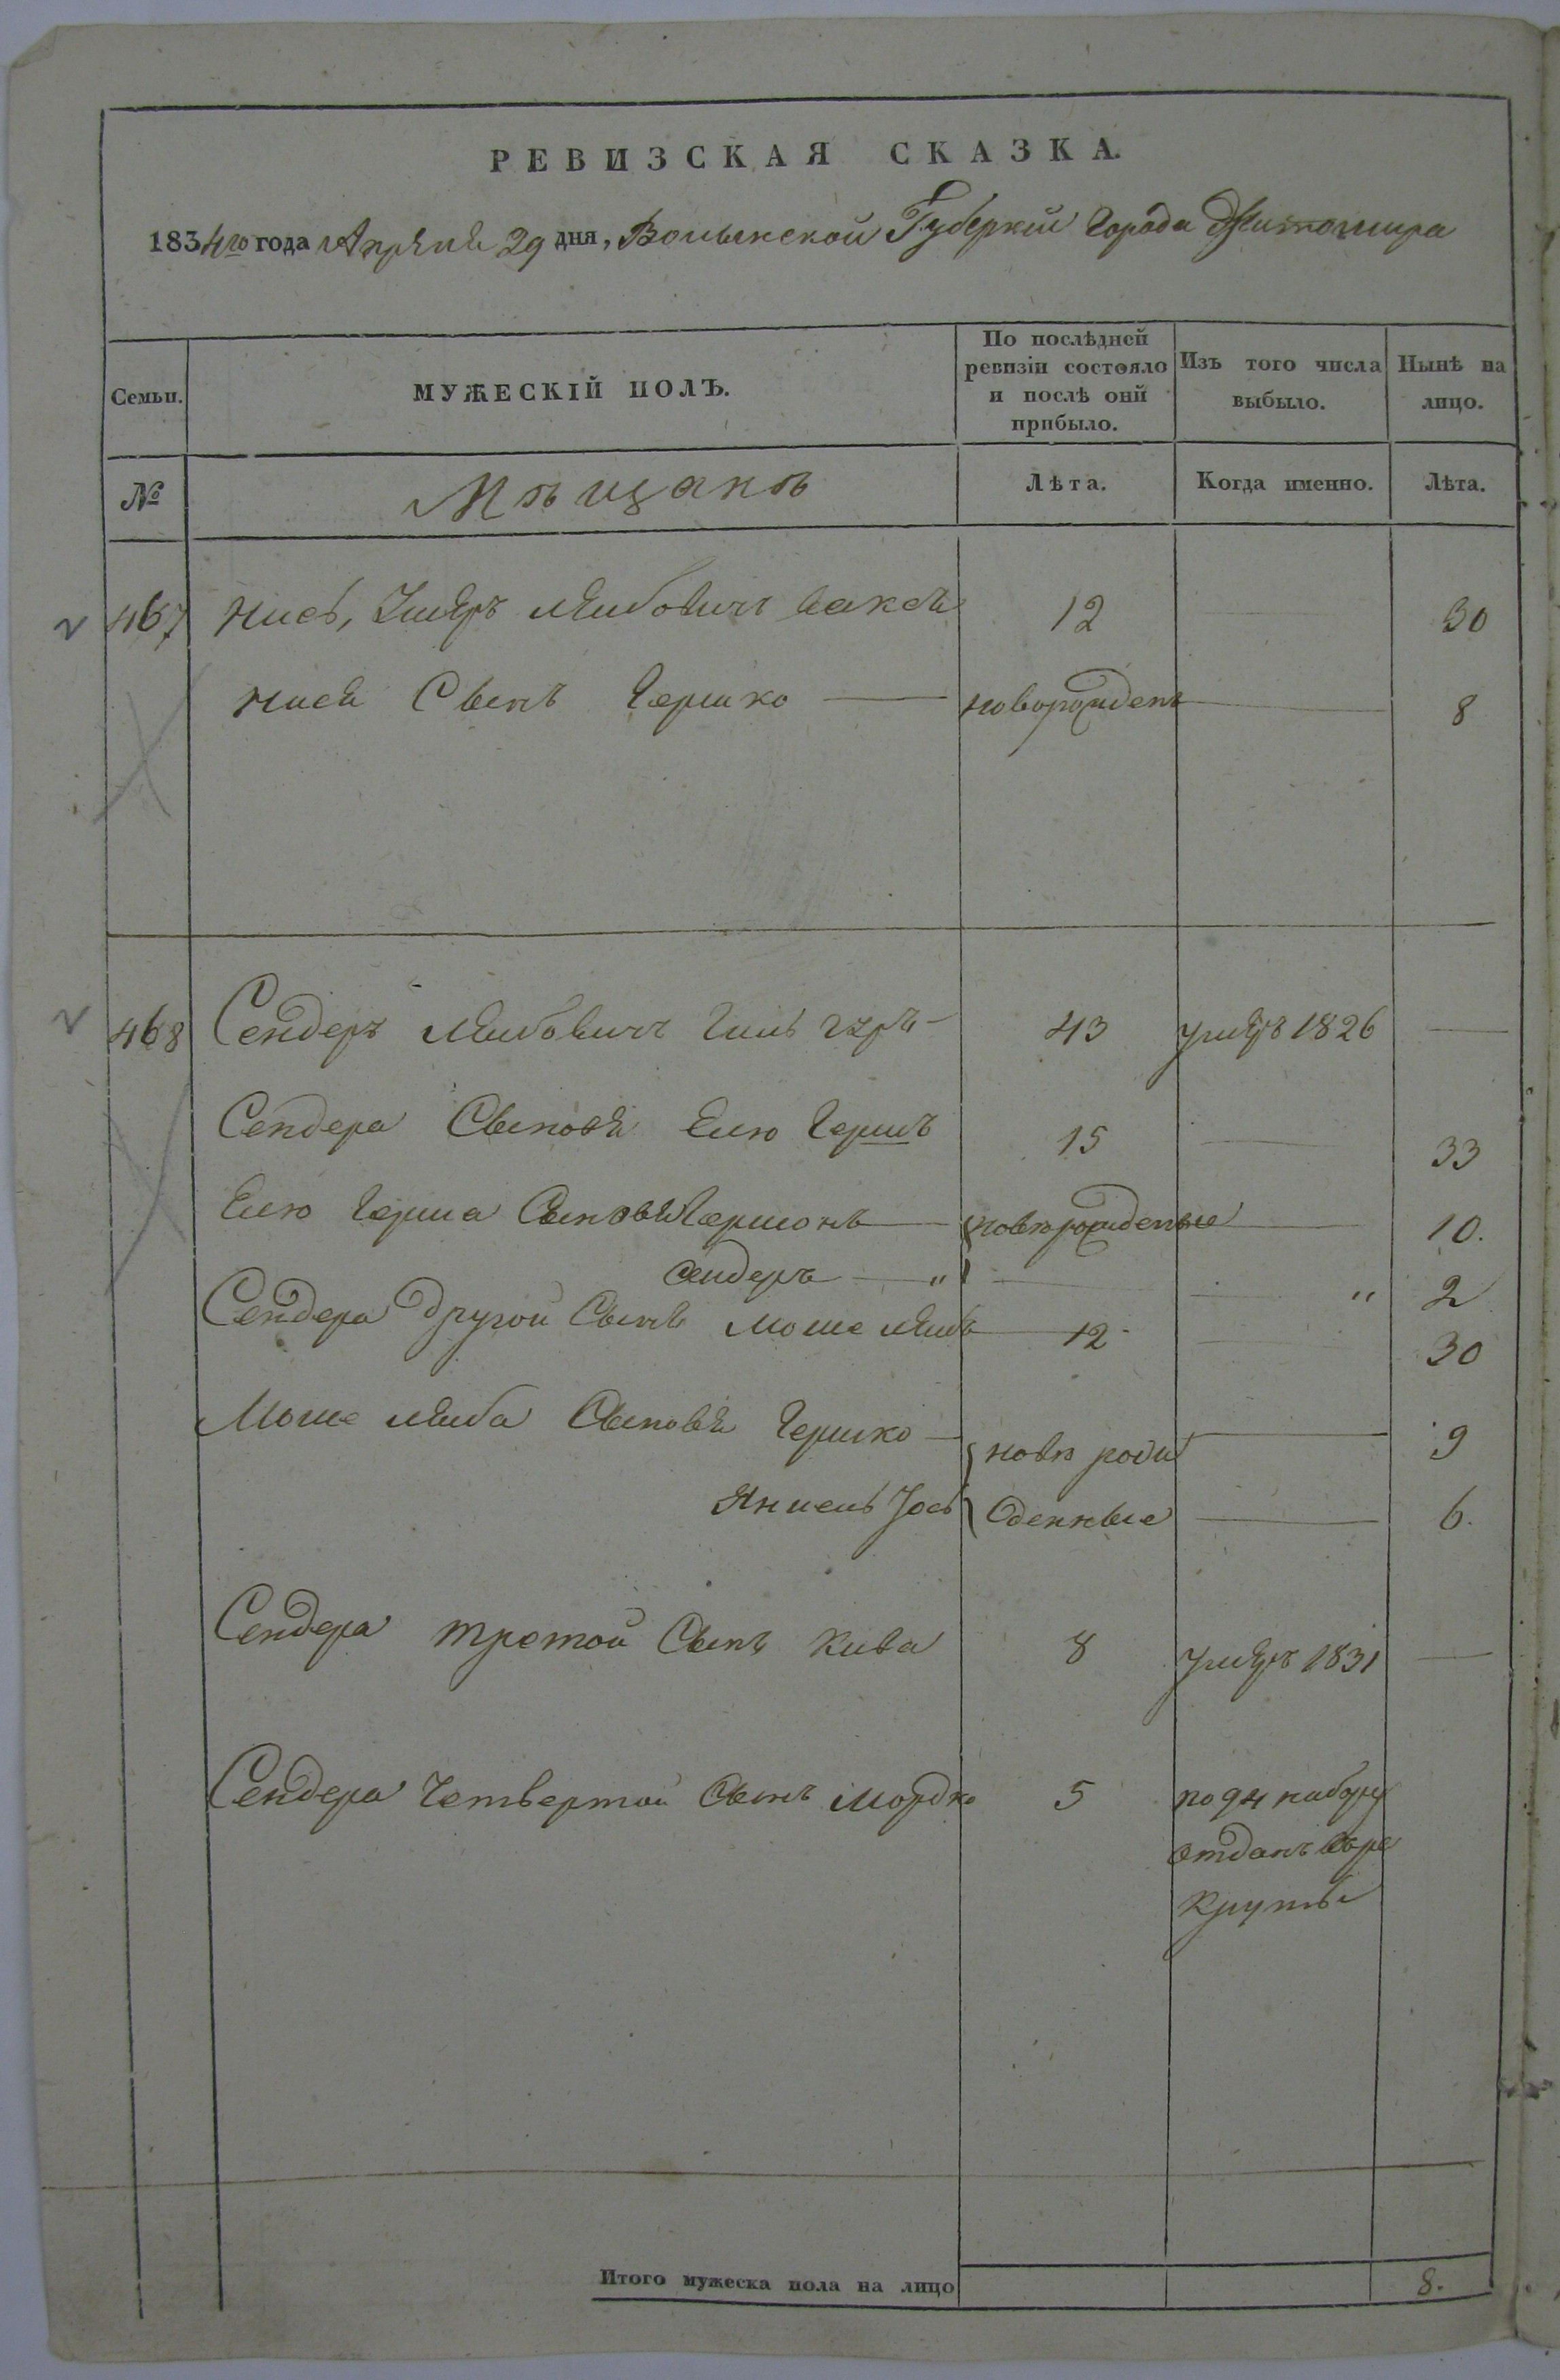 РЕВИЗСКАЯ СКАЗКА.
1834го года Апреля 29 дня, Волынской Губернии Города Житомира
Семьи.
МУЖЕСКІЙ ПОЛЪ.
По послѣдней ревизіи состояло и послѣ оній прибыло.
Изъ того числа выбыло.
Нынѣ на лицо.
№
Мѣщанъ
Лѣта.
Когда именно.
Лѣта.
467 Лейбовичъ 12 30
Сынъ Гершко новорожденъ 8
468 Сендеръ Лейбовичъ 43 умеръ 1826
Сендера Сыновя Елю Гершъ 15 33
Елю Герша Сыновя Гершонъ новорожденые 10.
Сендеръ " " 2
Сендера другой Сынъ Моше Лейб 12 30
Моше Лейба Сыновя Гершко новорож 9
Янкель Іось денные 6.
Сендера третой Сынъ Кива 8 умеръ 1831
Сендера Четвертой Сынъ Мордко 5 по 94 набору
отданъ въ ре
круты
Итого мужеска пола на лицо 8.